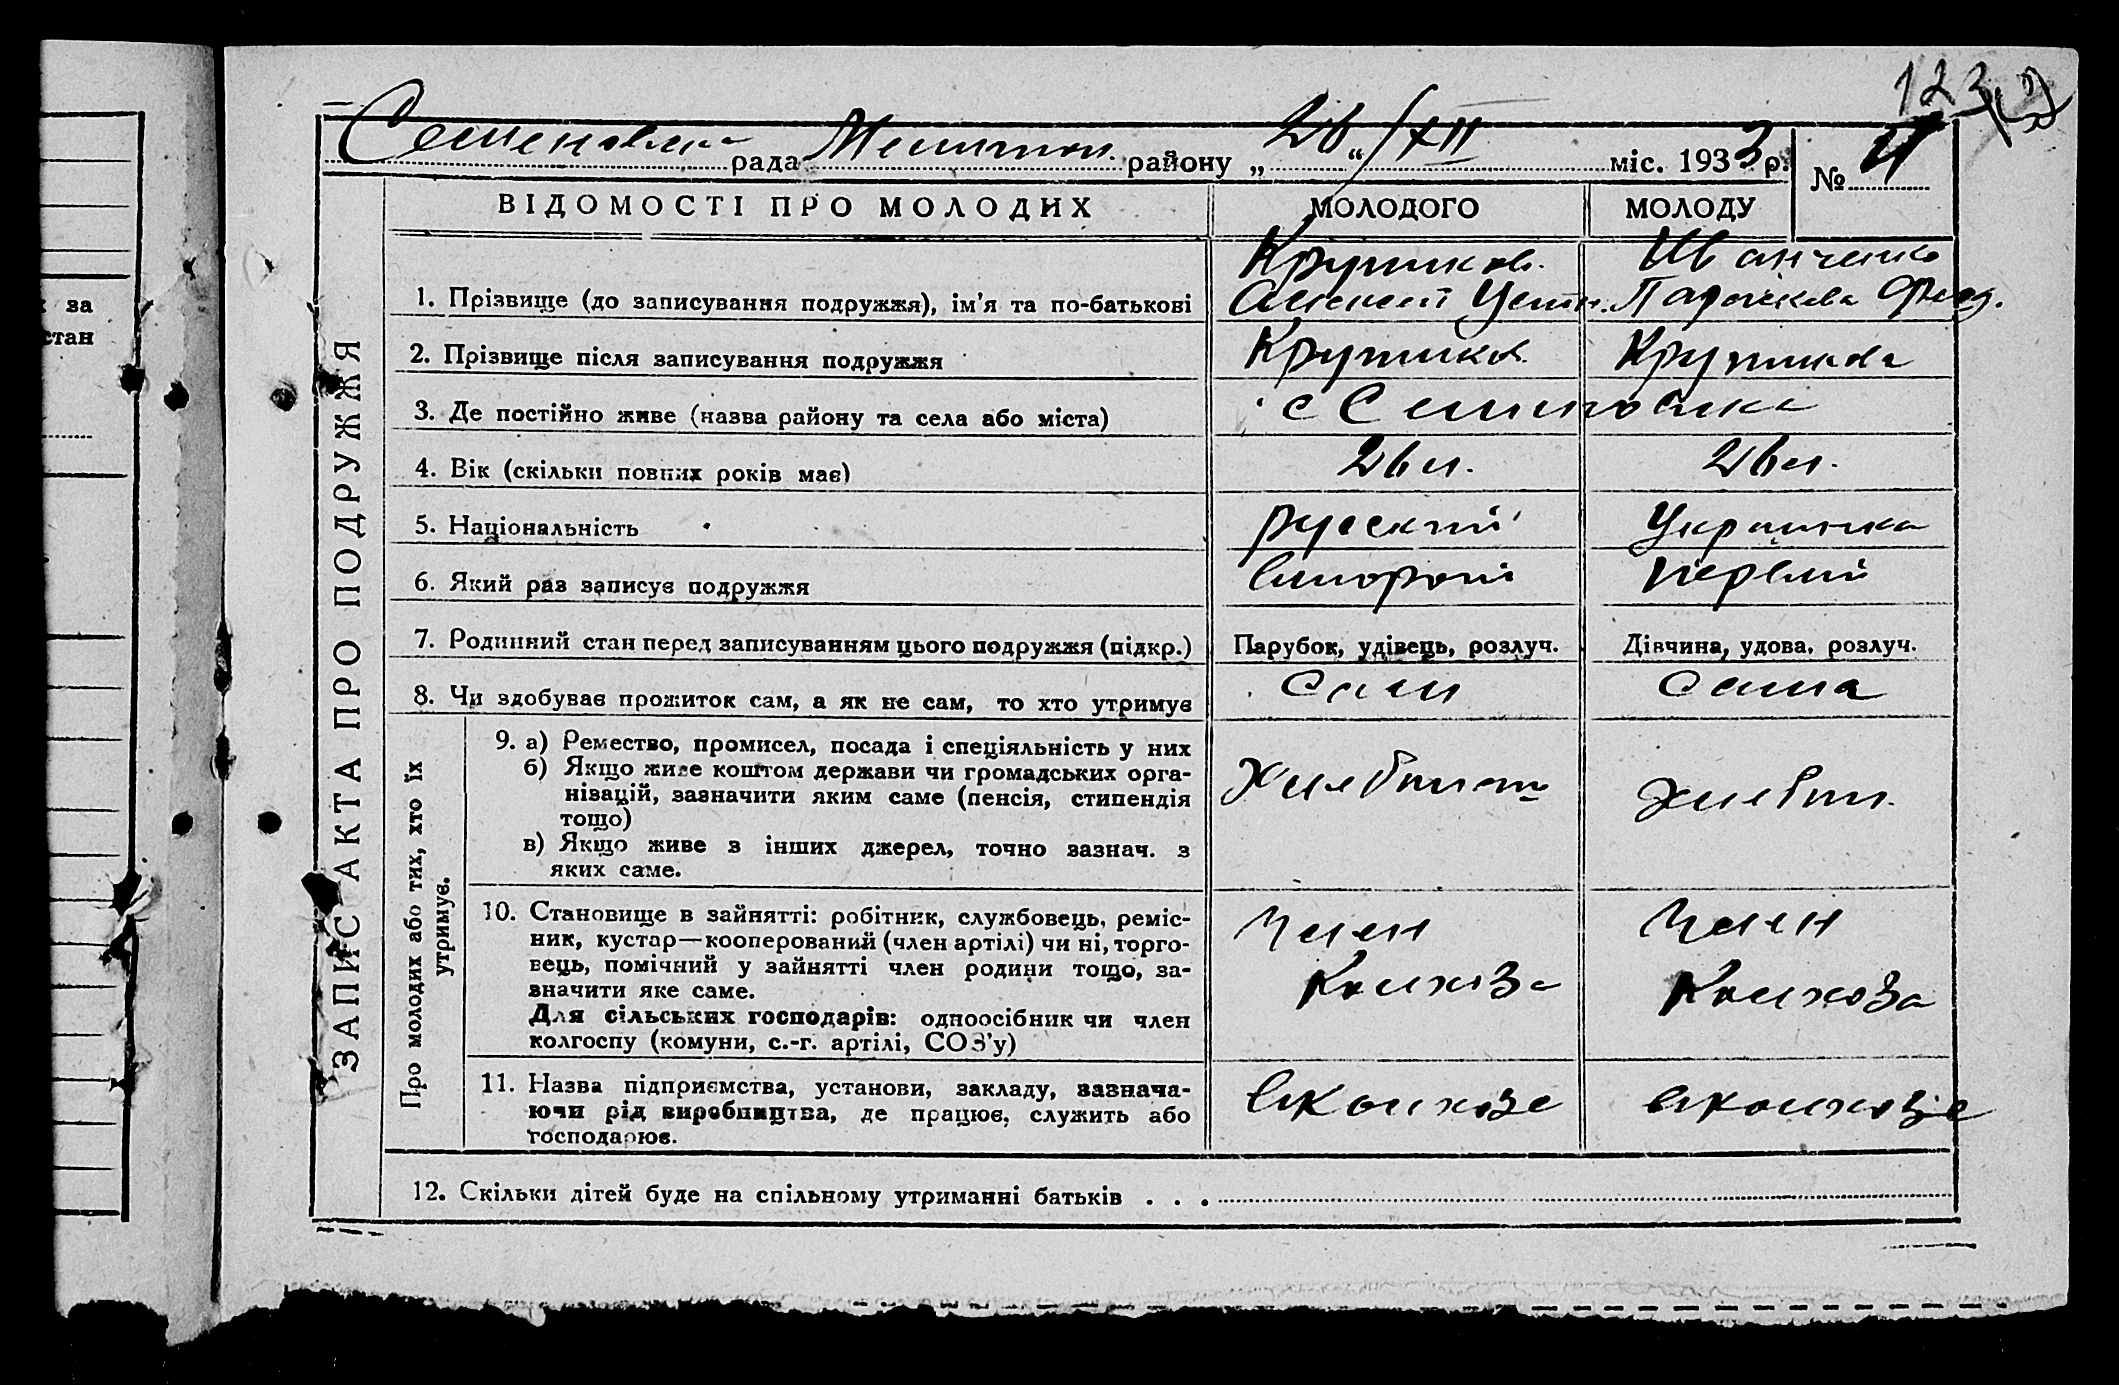 123
Семеновка рада Мелитоп. району „ 26 “ / XII міс. 1933 р. № 11
ВІДОМОСТІ ПРО МОЛОДИХ МОЛОДОГО МОЛОДУ
ЗАПИС АКТА ПРО ПОДРУЖЖЯ
Крутиков. Иванченко
1. Прізвище (до записування подружжя), ім'я та по-батькові Алексей Устин. Фед.
2. Прізвище після записування подружжя Крутиков. Крутикова
3. Де постійно живе (назва району та села або міста) с Семиновка
4. Вік (скільки повних років має) 26 л. 26 л.
5. Національність русский Украинка
6. Який раз записує подружжя второй первий
7. Родинний стан перед записуванням цього подружжя (підкр.) Парубок, удівець, розлуч. Дівчина, удова, розлуч.
8. Чи здобуває прожиток сам, а як не сам, то хто утримує сам сама
Про молодих або тих, хто їх
утримує.
9. а) Ремество, промисел, посада і спеціяльність у них
б) Якщо живе коштом держави чи громадських орга-
нізацій, зазначити яким саме (пенсія, стипендія
тощо)
в) Якщо живе з інших джерел, точно зазнач. з
яких саме.
Хлебпаш Хлебп.
10. Становище в зайнятті: робітник, службовець, реміс-
ник, кустар—кооперований (член артілі) чи ні, торго-
вець, помічний у зайнятті член родини тощо, за-
значити яке саме.
Для сільських господарів: одноосібник чи член
колгоспу (комуни, с.-г. артілі, СОЗ'у)
Член Член
Колхоза Колхоза
11. Назва підприємства, установи, закладу, зазнача-
ючи рід виробництва, де працює, служить або
господарює.
вколхозе вколхозе
12. Скільки дітей буде на спільному утриманні батьків . . .
за
стан